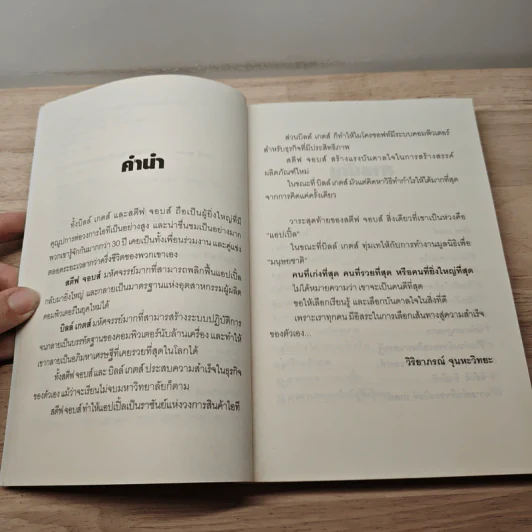 คำนำ
ทั้งบิลล์ เกตส์ และสตีฟ จอบส์ ถือเป็นผู้ยิ่งใหญ่ที่มี
คุณูปการต่อวงการไอทีเป็นอย่างสูง และน่าชื่นชมเป็นอย่างมาก
พวกเขารู้จักกันมากว่า 30 ปี เคยเป็นทั้งเพื่อนร่วมงาน และคู่แข่ง
ตลอดระยะเวลากว่าครึ่งชีวิตของพวกเขาเอง
สตีฟ จอบส์ มหัศจรรย์มากที่สามารถพลิกฟื้นแอปเปิ้ล
กลับมายิ่งใหญ่ และกลายเป็นมาตรฐานแห่งอุตสาหกรรมผู้ผลิต
คอมพิวเตอร์ในยุคใหม่ได้
บิลล์ เกตส์ มหัศจรรย์มากที่สามารถสร้างระบบปฏิบัติการ
จนกลายเป็นบรรทัดฐานของคอมพิวเตอร์นับล้านเครื่อง และทำให้
เขากลายเป็นอภิมหาเศรษฐีที่เคยรวยที่สุดในโลกได้
ทั้งสตีฟ จอบส์ และ บิลล์ เกตส์ ประสบความสำเร็จในธุรกิจ
ของตัวเอง แม้ว่าจะเรียนไม่จบมหาวิทยาลัยก็ตาม
สตีฟ จอบส์ ทำให้แอปเปิ้ลเป็นราชันย์แห่งวงการสินค้าไอที
ส่วนบิลล์ เกตส์ ก็ทำให้ไมโครซอฟท์มีระบบคอมพิวเตอร์
สำหรับธุรกิจที่มีประสิทธิภาพ
สตีฟ จอบส์ สร้างแรงบันดาลใจในการสร้างสรรค์
ผลิตภัณฑ์ใหม่
ในขณะที่ บิลล์ เกตส์ มัวแต่คิดหาวิธีทำกำไรให้ได้มากที่สุด
จากการคิดแค่ครั้งเดียว
วาระสุดท้ายของสตีฟ จอบส์ สิ่งเดียวที่เขาเป็นห่วงคือ
"แอปเปิ้ล"
ในขณะที่บิลล์ เกตส์ ทุ่มเทให้กับการทำงานมูลนิธิเพื่อ
"มนุษยชาติ"
คนที่เก่งที่สุด คนที่รวยที่สุด หรือคนที่ยิ่งใหญ่ที่สุด
ไม่ได้หมายความว่า เขาจะเป็นคนดีที่สุด
ขอให้เลือกเรียนรู้ และเลือกบันดาลใจในสิ่งที่ดี
เพราะเราทุกคน มีอิสระในการเลือกเส้นทางสู่ความสำเร็จ
ของตัวเอง...
วิริยาภรณ์ จุนหะวิทยะ